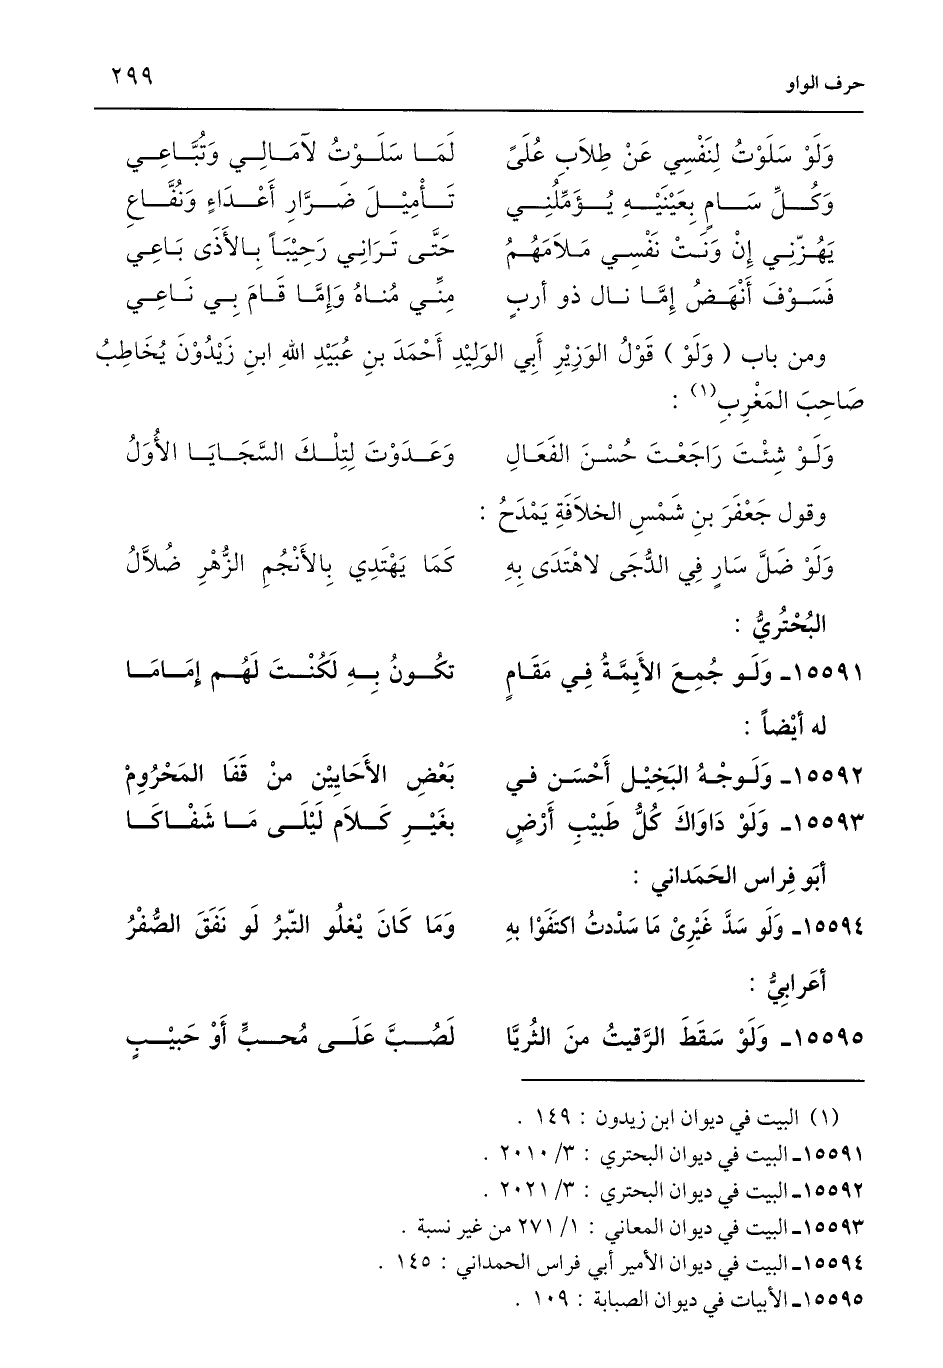 حرف الواو ٢٩٩
وَلَو سَلَوْتُ لِنَفْسِي عَنْ طِلَابِ عُلَىً لَمَــا سَلَــوْتُ لآمَـالِــي وَتُبَّـاعِــي
وَكُـــلِّ سَـــامٍ بِعَيْنَيْـــهِ يُـــؤَمِّلُنِـــي تَــأْمِيْــلَ ضَــرَّارِ أَعْــدَاءٍ وَنُفَّــاعِ
يَهُــزّنِــي إِنْ وَنَــتْ نَفْسِــي مَــلاَمَهُــمُ حَتَّــى تَــرَانِي رَحِيْبَـاً بِـالأَذَى بَـاعِـي
فَسَــوْفَ أَنْهَــضُ إِمَّــا نــال ذو أربٍ مِنِّــي مُنــاهُ وَإِمَّــا قَــامَ بِــي نَــاعِي
ومن باب ( وَلَوْ ) قَوْلُ الوَزِيْرِ أَبِي الوَلِيْدِ أَحْمَدَ بنِ عُبَيْدِ اللهِ ابنِ زَيْدُوْنَ يُخَاطِبُ
صَاحِبَ المَغْرِبِ(١) :
وَلَــوْ شِئْــتَ رَاجَعْــتَ حُسْــنَ الفَعَــالِ وَعَــدَوْتَ لِتِلْــكَ السَّجَــايَــا الأُوَلُ
وقول جَعْفَرَ بنِ شَمْسِ الخلاَفَةِ يَمْدَحُ :
وَلَوْ ضَلَّ سَارٍ فِي الدُّجَى لاهْتَدَى بِهِ كَمَا يَهْتَدِي بِالأَنْجُمِ الزُّهْرِ ضُلاَّلُ
البُحْتُرِيُّ :
١٥٥٩١ـ وَلَــو جُمِعَ الأَيِمَّــةُ فِــي مَقَــامٍ تكُــونُ بِــهِ لَكُنْــتَ لَهُــم إِمَـامَــا
له أيْضاً :
١٥٥٩٢ـ وَلَــوجْــهُ البَخِيْــلِ أَحْسَــن فــي بَعْضِ الأَحَايِيْنِ منْ قَفَا المَحْرُومْ
١٥٥٩٣ـ وَلَوْ دَاوَاكَ كُلُّ طَبِيْبِ أَرْضٍ بغَيْــرِ كَــلاَمِ لَيْلَــى مَــا شَفَــاكَــا
أبَو فِراس الحَمَداني :
١٥٥٩٤ـ وَلَو سَدَّ غَيْرِىْ مَا سَدْدتُ اكتَفَوْا بهِ وَمَا كَانَ يَغلُو التّبرُ لَو نَفَقَ الصُّفْرُ
أعَرابِيُّ :
١٥٥٩٥ـ وَلَوْ سَقَطَ الرَّقيتُ منَ الثُريَّا لَصُــبَّ عَلَــى مُحــبٍّ أَوْ حَبِيْــبٍ
(١) البيت في ديوان ابن زيدون : ١٤٩ .
١٥٥٩١ـ البيت في ديوان البحتري : ٣/ ٢٠١٠ .
١٥٥٩٢ـ البيت في ديوان البحتري : ٣/ ٢٠٢١ .
١٥٥٩٣ـ البيت في ديوان المعاني : ١/ ٢٧١ من غير نسبة .
١٥٥٩٤ـ البيت في ديوان الأمير أبي فراس الحمداني : ١٤٥ .
١٥٥٩٥ـ الأبيات في ديوان الصبابة : ١٠٩ .